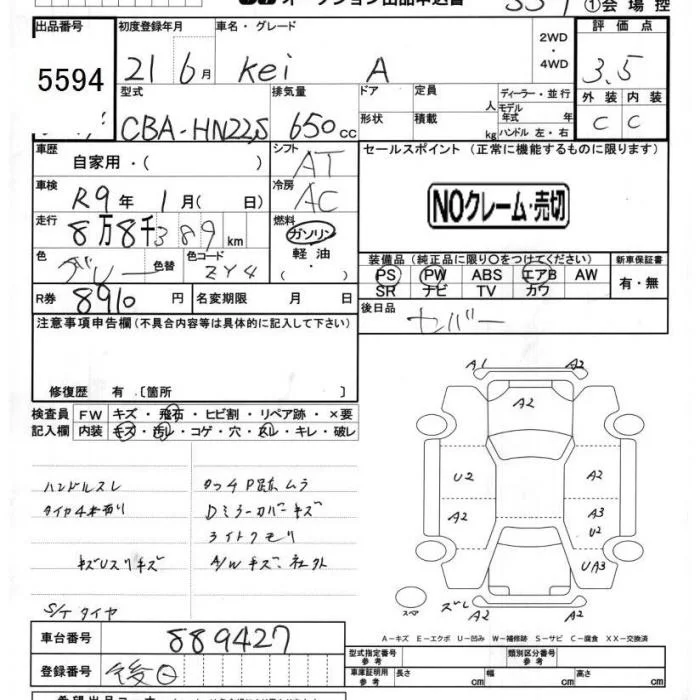 オークション出品申込書
①会場控
出品番号 初度登録年月 車名・グレード 2WD・4WD 評価点
5594 21 6月 Kei A 3.5
型式 排気量 ドア 定員 人 ディーラー・並行 外装 内装
CBA-HN22S 650cc 形状 積載 kg モデル年式 年式 ハンドル 左・右 C C
車歴 自家用・( ) シフト AT セールスポイント (正常に機能するものに限ります)
車検 R9年 1月( 日) 冷房 AC NOクレーム・売切
走行 8万8千389km 燃料 ガソリン 軽油 ( ・ )
色 グレー 色替 色コード ZY4 装備品 (純正品に限り〇をつけてください) 新車保証書
PS PW ABS エアB AW 有・無
SR ナビ TV カワ
R券 8910円 名変期限 月 日 後日品 セバー
注意事項申告欄 (不具合内容等は具体的に記入して下さい)
修復歴 有 〔箇所 〕
検査員 FW キズ・飛石・ヒビ割・リペア跡・×要
記入欄 内装 キズ・汚レ・コゲ・穴・スレ・キレ・破レ
A1 A2
A2
U2 A2
A2 A3
U2
UA3
スペ ズレ A2 A2
ハンドルスレ タッチP跡ムラ
タイヤ4本有り Dミラーカバーキズ
ライトクモリ
キズUスリキズ A/Wキズ、社外
S/Tタイヤ
A-キズ E-エクボ U-凹み W-補修跡 S-サビ C-腐食 XX-交換済
車台番号 889427
型式指定番号 参考 類別区分番号 参考
登録番号 後日 車庫証明用 参考 長さ cm 幅 cm 高さ cm